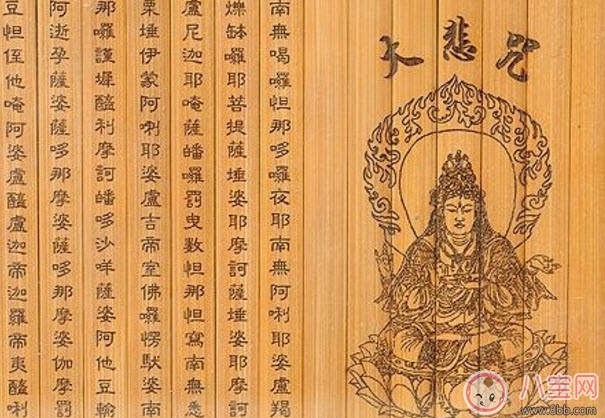 大悲咒
南無喝囉怛那哆囉夜耶南無阿唎耶婆盧羯
爍缽囉耶菩提薩埵婆耶摩訶薩埵婆耶摩訶
盧尼迦耶唵薩皤囉罰曳數怛那怛寫南無悉
栗埵伊蒙阿唎耶婆盧吉帝室佛囉愣馱婆南
那囉謹墀醯利摩訶皤哆沙咩薩婆阿他豆輸
阿逝孕薩婆薩哆那摩婆薩哆那摩婆伽摩罰
豆怛侄他唵阿婆盧醯盧迦帝迦羅帝夷醯唎
八宝网
www.8bb.com